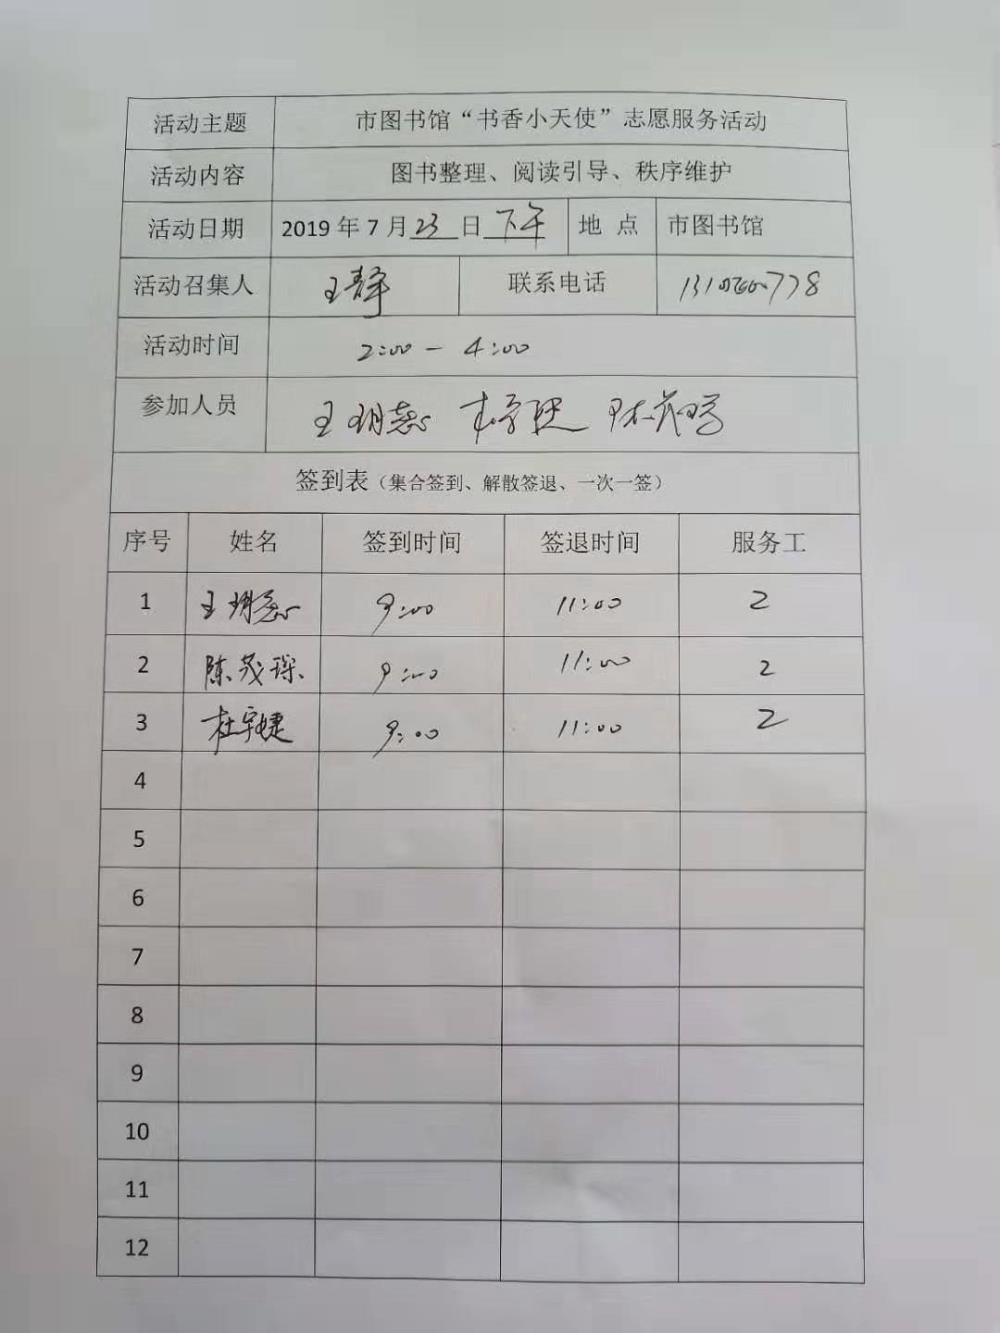 活动主题 市图书馆“书香小天使”志愿服务活动
活动内容 图书整理、阅读引导、秩序维护
活动日期 2019年7月23日下午 地 点 市图书馆
活动召集人 王静 联系电话
活动时间 2:00 - 4:00
参加人员 王玥蕊
签到表（集合签到、解散签退、一次一签）
序号 姓名 签到时间 签退时间 服务工
1 王玥蕊 9:00 11:00 2
2 陈茂琛 9:00 11:00 2
3 杜宇婕 9:00 11:00 2
4
5
6
7
8
9
10
11
12